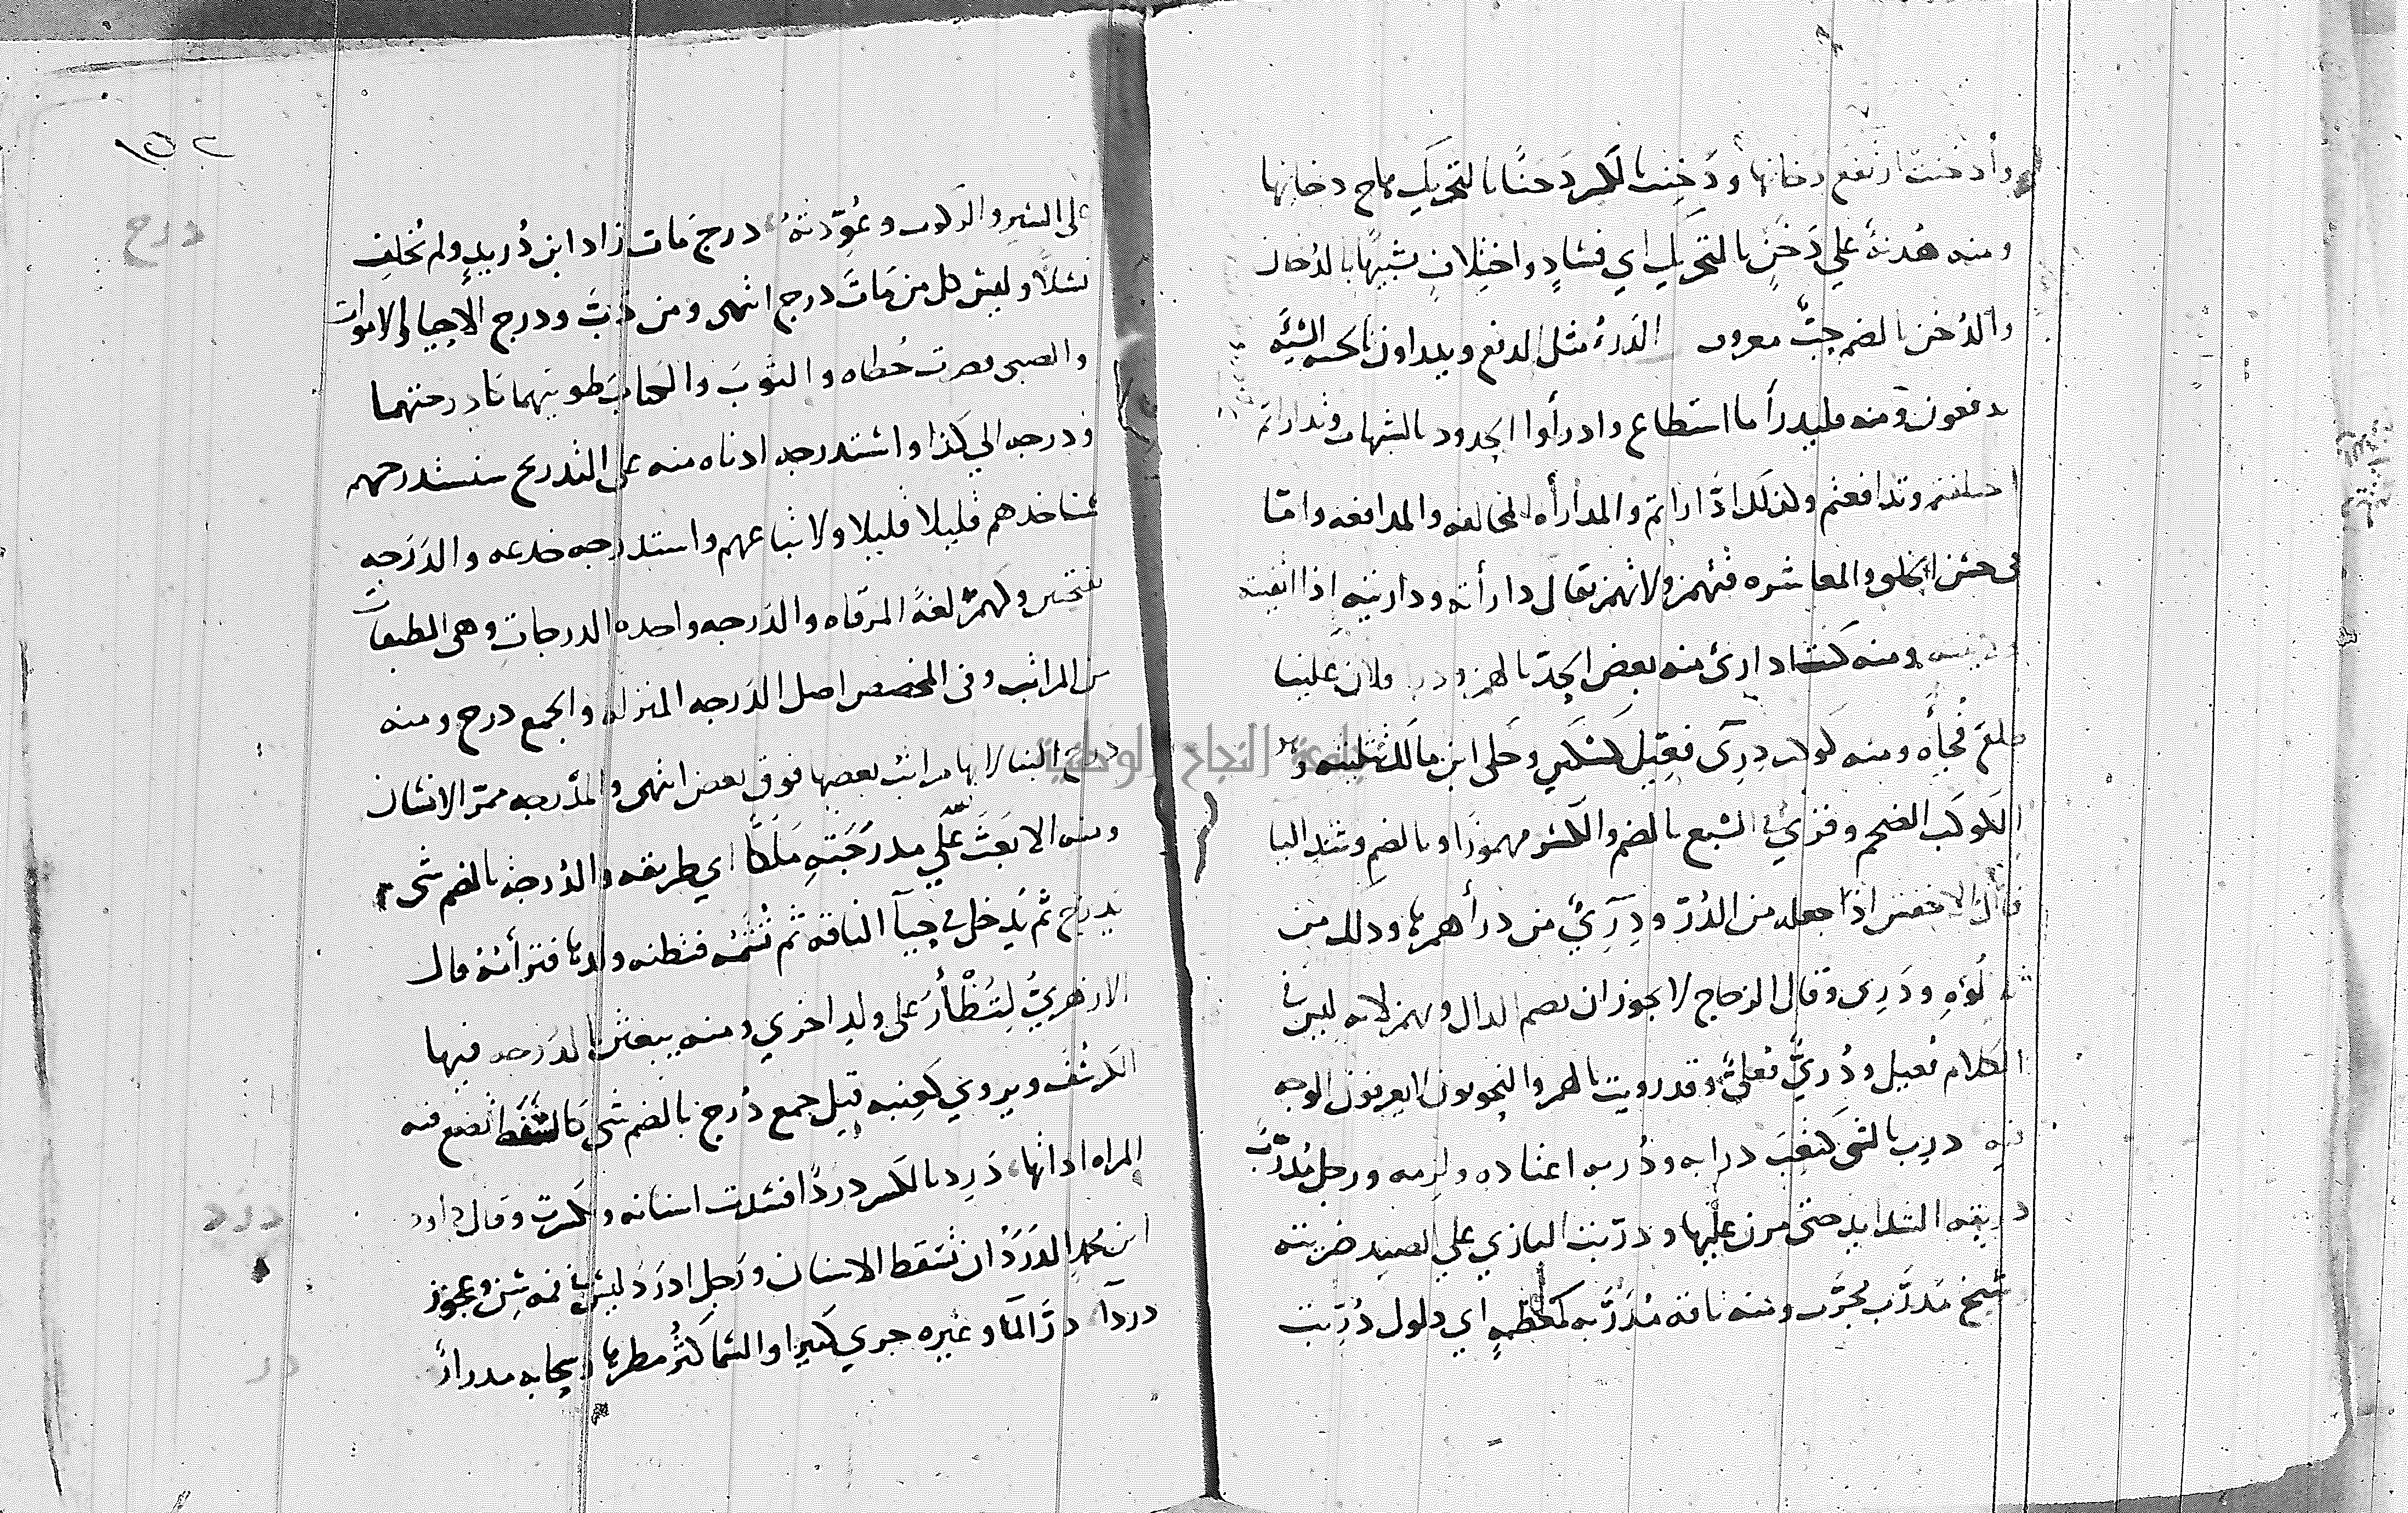 وأدخنت ارتفع دخانها ودَخِنت بالكسر دَخَنًا بالتحريك هاج دخانها
ومنه هُدنة علي دَخَنٍ بالتحريك اي فسادٍ واختلافٍ تشبيهًا بالدُخان
والدُخن بالضم حبٌّ معروف الدَرءُ مثل الدفع ويدراون بالحسنة السَّيِّئَة
يدفعون ومنه فليدرأ ما استطاع وادرأوا الحدود بالشبهات وتداراتم
اختلفتم وتدافعتم وكذلك ادَّاراتم والمدارأه المخالفه والمدافعه وامّا
في حسن الخلق والمعاشره فتهمز ولا تهمز يقال دارأته وداريته اذا اتقيته
ومنه كنت اداري منه بعض الحدّ بالهمز ودرا فلان علينا
طلع فُجأه ومنه كوكب دِرِّيّ فعِّيل كسكّير وحكى ابن مالك تثليثه وهو
الكوكب الضخم وقري في السبع بالضم والكسر مهموزًا وبالضم وشد اليا
قال الاخفش اذا جعله من الدُرّ ودِرِّيءٌ من درأ همزها وذلك من
تلألُؤِه ودَرِى وقال الزجاج لا يجوز ان يضم الدال ويهمز لانه ليس في
الكلام فُعيل ودُرِّيٌّ فُعليٌّ وقد رويت بالهمز والنحويون لا يعرفون الوجه
فيه درِب بالشي كتعِبَ درابه ودُربه اعتاده ولزمه ورجل مُدرَّب
دربته الشدايد حتى مرن عليها ودرّبت البازي علي الصيد ضرّيته
وشيخ مُدرَّب مجرَّب ومنه ناقه مُدَرَّبه كمعظمةٍ اي ذلول دُرِّبت
١٥٢
على السير والركوب وعُوِّدَتهُ درج مات زاد ابن دُريدٍ ولم يُخلِف
درج
نسلاً وليس كل من مَاتَ درج انتهى ومن دَبَّ ودرج الاحيا والاموات
والصبى قصرت خُطاه والثوبَ والكتابَ طويتهما كادرجتهما
ودرجه الي كذا واستدرجه ادناه منه على التدريج سنستدرجهم
سناخذهم قليلا قليلا ولا نباغتهم واستدرجه خدعه والدَرَجه
بفتحتين وكهمزة لغة المرقاه والدَرجه واحده الدرجات وهى الطبقات
من المراتب وفى المخصص اصل الدَرجه المنزله والجمع درج ومنه
درج البنا لانها مراتب بعضها فوق بعض انتهى والمَدْرجه ممرّ الانسان
ومنه الا بَعَثَ عَلَي مدرَجَتهِ مَلَكًا اي طريقه والدُرجه بالضم شى
يُدرَج ثم يُدخل في حيآ الناقه ثم تُشمّه فتظنه ولدها فترأمُهُ قال
الازهريّ لِتُظْأَرَ على ولد اخري ومنه يبعثن بالدَرجه فيها
الكرسُف ويروي كعِنبه قيل جمع دُرج بالضم شى كالسَفَط تضع فيه
المراه اداتها دَرِد بالكسر دردًا فسدت اسنانه وتكسرت وقال داود
درد
ابن محمد الدَرَدُ ان تسقط الاسنان ورَجل ادرَد ليس في فمه سِن وعجوز
دردآ درَّ المآ وغيره جري كثيرا والسما كثُر مطرها وسحابه مدرارٌ
در
جامعة النجاح الوطنية